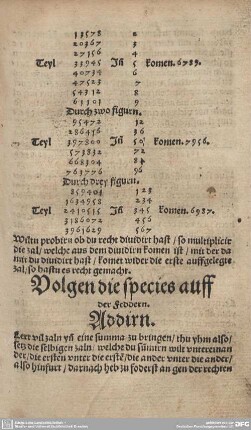 13578 2
20367 3
27156 4
Teyl 33945 Jn 5 komen.6789.
40734 6
47523 7
54312 8
61101 9
Durch zwo figurn.
95472 12
286416 36
Teyl 397800 Jn 50 komen.7956.
572832 72
668304 84
763776 96
Durch drey figuren.
859401 123
1634958 234
Teyl 2410515 Jn 345 komen.6987.
3186072 456
3961629 567
Wiltu probirn ob du recht diuidirt hast/so multiplicir
die zal/welche aus dem diuidirn komen ist/mit der da
mit du diuidirt hast/komet wider die erste auffgelegte
zal/so hastu es recht gemacht.
Volgen die species auff
der Feddern.
Addirn.
Lert vil zaln yn eine summa zu bringen/thu yhm also/
setz die selbigen zaln/welche du sumirn wilt vntereinan
der/die ersten vnter die erste/die ander vnter die ander/
also hinfurt/Darnach heb zu foderst an gen der rechten